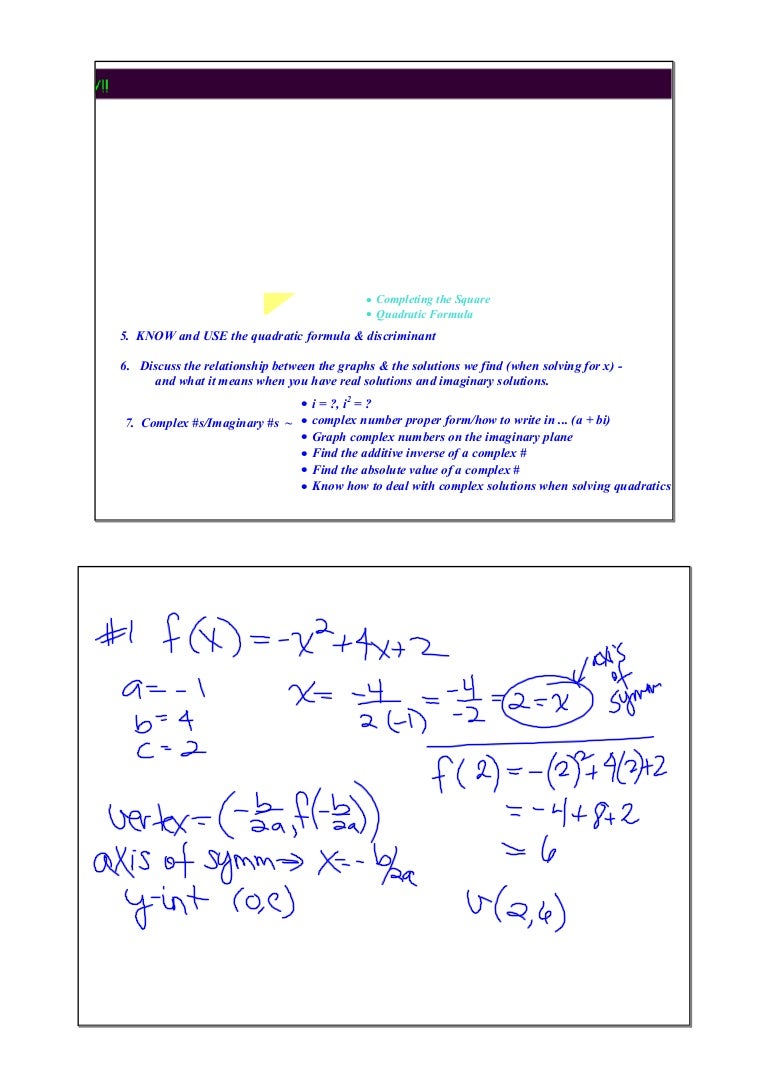 • Completing the Square
• Quadratic Formula
5. KNOW and USE the quadratic formula & discriminant
6. Discuss the relationship between the graphs & the solutions we find (when solving for x) -
and what it means when you have real solutions and imaginary solutions.
7. Complex #s/Imaginary #s ~
• i = ?, i² = ?
• complex number proper form/how to write in ... (a + bi)
• Graph complex numbers on the imaginary plane
• Find the additive inverse of a complex #
• Find the absolute value of a complex #
• Know how to deal with complex solutions when solving quadratics
#1 f(x) = -x² + 4x + 2
a = -1
b = 4
c = 2
x = -4/2(-1) = -4/-2 = 2 = x
axis
of
symm
f(2) = -(2)² + 4(2) + 2
= -4 + 8 + 2
= 6
v(2,6)
vertex = (-b/2a, f(-b/2a))
axis of symm ⇒ x = -b/2a
y-int (0,c)